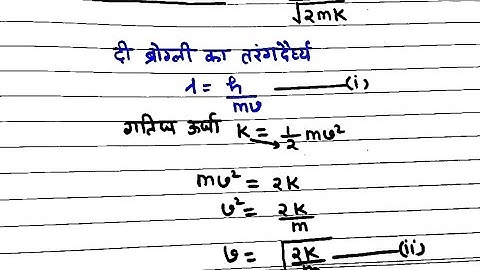 √2mK
दी ब्रोग्ली का तरंगदैर्ध्य
λ = h/mv —— (i)
गतिज ऊर्जा K = 1/2 mv²
mv² = 2K
v² = 2K/m
v = √2K/m —— (ii)